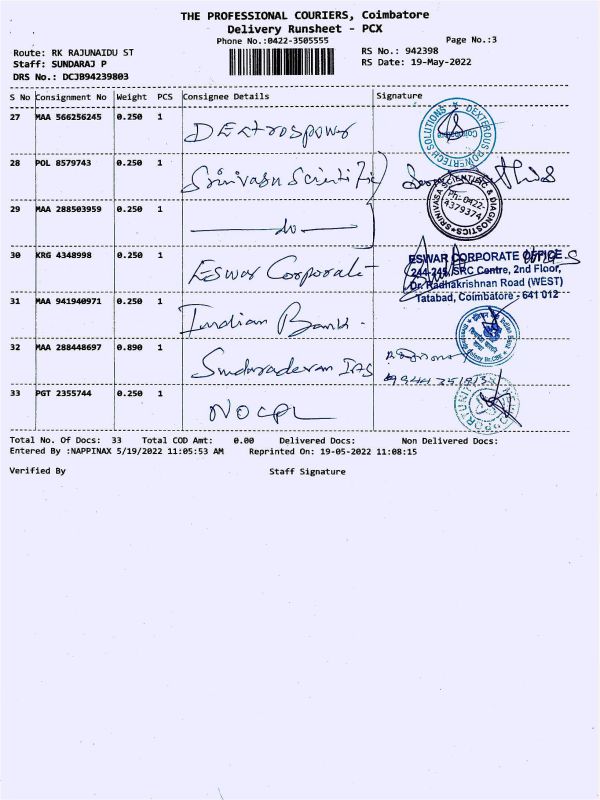 THE PROFESSIONAL COURIERS, Coimbatore
Delivery Runsheet - PCX
Phone No.:0422-3505555
Page No.:3
Route: RK RAJUNAIDU ST
RS No.: 942398
Staff: SUNDARAJ P
RS Date: 19-May-2022
DRS No.: DCJB94239803
S No Consignment No Weight PCS Consignee Details Signature
27 MAA 566256245 0.250 1
DEXTEROUS POWERTECH SOLUTIONS
Coimbatore
28 POL 8579743 0.250 1 Srinivasa Scientific
SRINIVASA SCIENTIFIC & DIAGNOSTICS
Ph: 0422-
4379374
29 MAA 288503959 0.250 1 do
30 KRG 4348998 0.250 1 Eswar Corporate
ESWAR CORPORATE OFFICE
244-245, SRC Centre, 2nd Floor,
Dr. Radhakrishnan Road (WEST)
Tatabad, Coimbatore - 641 012
31 MAA 941940971 0.250 1 Indian Bank.
32 MAA 288448697 0.890 1 IAS
33 PGT 2355744 0.250 1 NOCPL
Total No. Of Docs: 33 Total COD Amt: 0.00 Delivered Docs: Non Delivered Docs:
Entered By :NAPPINAX 5/19/2022 11:05:53 AM Reprinted On: 19-05-2022 11:08:15
Verified By Staff Signature